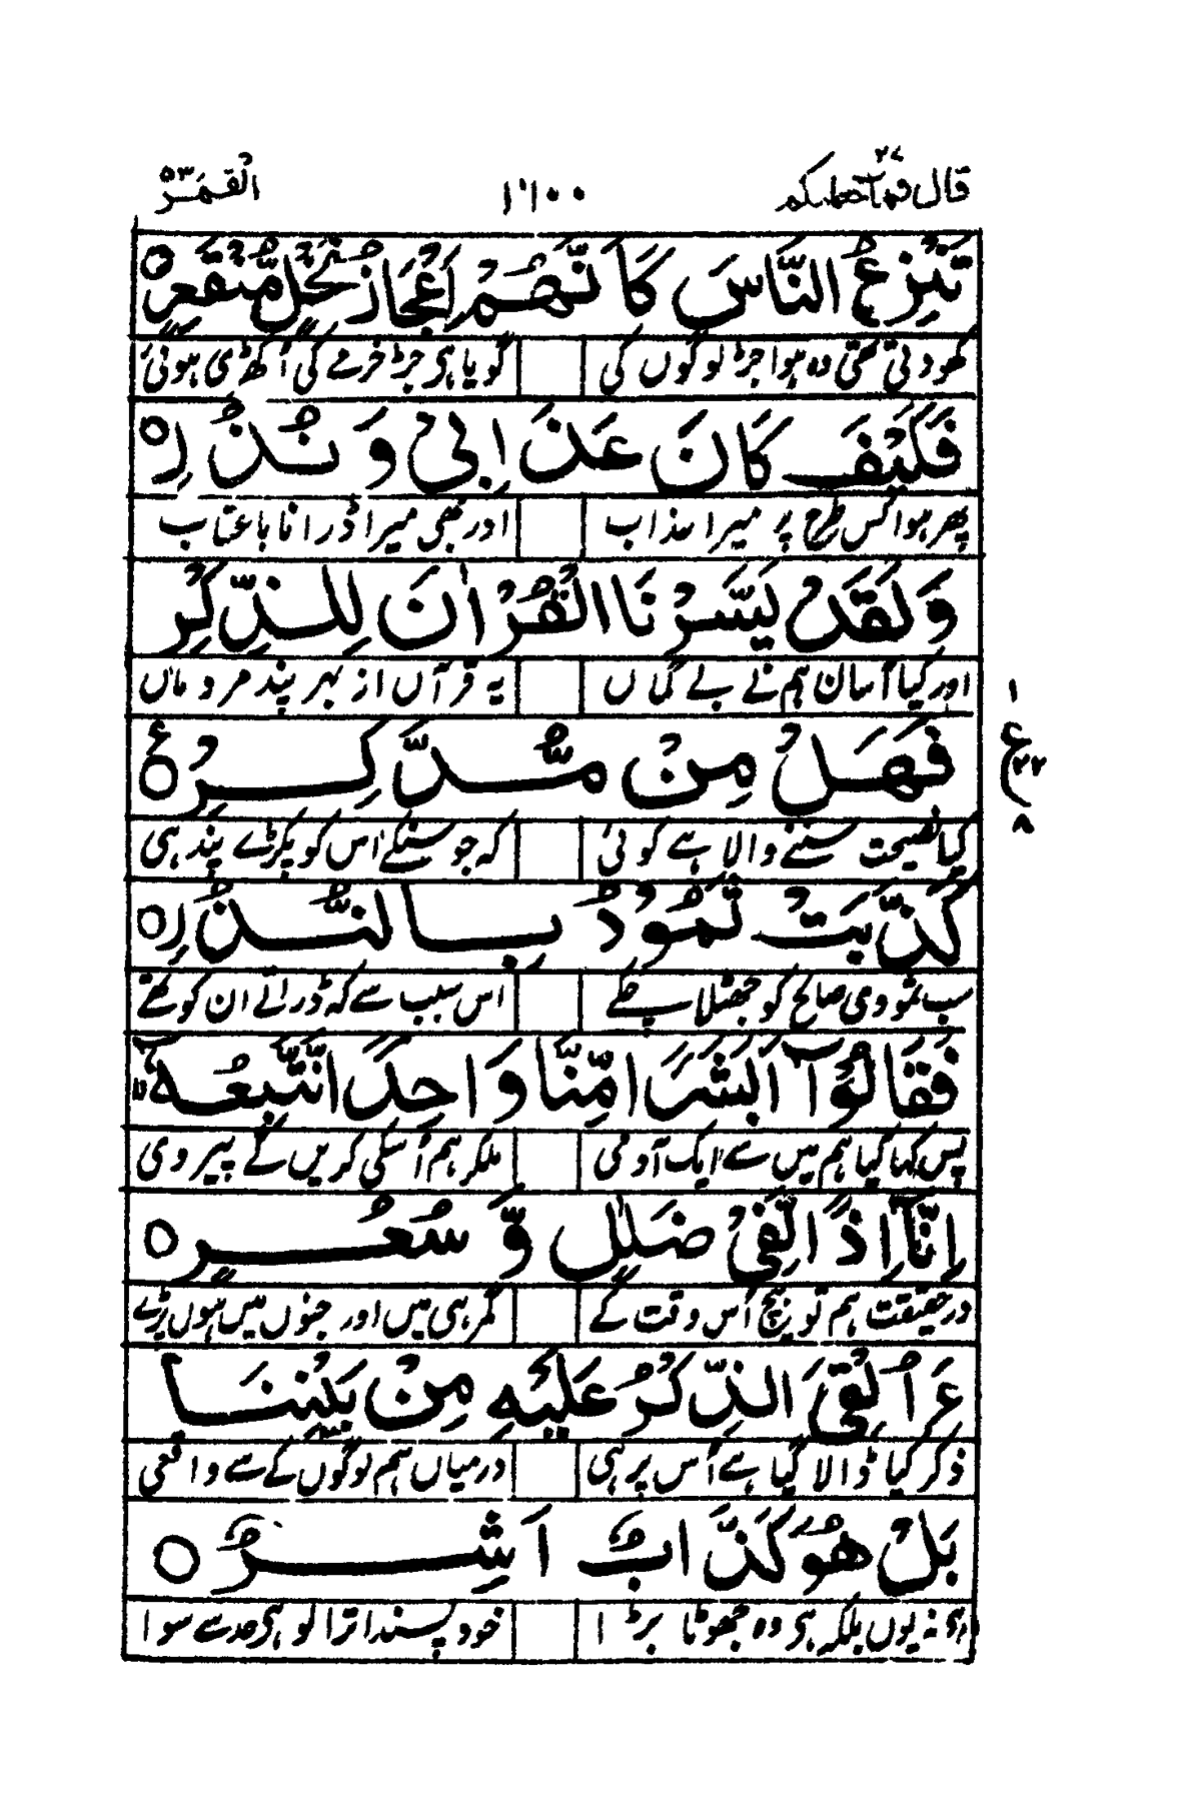 قال فما خطبکم ۲۷
۱۶۰۰
القمر ۵۳
تَنْزِعُ النَّاسَ كَاَنَّهُمْ اَعْجَازُ نَخْلٍ مُّنْقَعِرٍ ○
کھودتی تھی وہ ہوا جڑ لوگوں کی گویا ہی جڑ خرمے کی اُکھڑی ہوئی
فَكَيْفَ كَانَ عَذَابِيْ وَنُذُرِ ○
پھر ہوا کس طرح پر میرا عذاب اور بھی میرا ڈرانا با عتاب
وَلَقَدْ يَسَّرْنَا الْقُرْاٰنَ لِلذِّكْرِ
اور کیا آساں ہم نے بے گماں یہ قرآں از بہر پند مردماں
فَهَلْ مِنْ مُّدَّكِرٍ ○ ع
کیا نصیحت سننے والا ہے کوئی کہ جو سنکے اس کو پکڑے پند ہی
۱
ع ۲۲
۸
كَذَّبَتْ ثَمُوْدُ بِالنُّذُرِ ○
سب ثمودی صالح کو جھٹلا چکے اس سبب سے کہ ڈراتے ان کو تھے
فَقَالُوْٓا اَبَشَرًا مِّنَّا وَاحِدًا نَّتَّبِعُهٗٓ لا
پس کہا کیا ہم میں سے ایک آدمی ملکر ہم اُسکی کریں گے پیروی
اِنَّآ اِذًا لَّفِيْ ضَلٰلٍ وَّسُعُرٍ ○
در حقیقت ہم تو بیچ اُس وقت کے گمرہی میں اور جنوں میں ہوں پڑے
ءَاُلْقِيَ الذِّكْرُ عَلَيْهِ مِنْ بَيْنِنَا
ذکر کیا ڈالا گیا ہے اُس پر ہی درمیاں ہم لوگوں کے سے واقعی
بَلْ هُوَ كَذَّابٌ اَشِرٌ ○
نہ یوں بلکہ ہی وہ جھوٹا بڑا خود پسند اترا تو ہی حد سے سوا